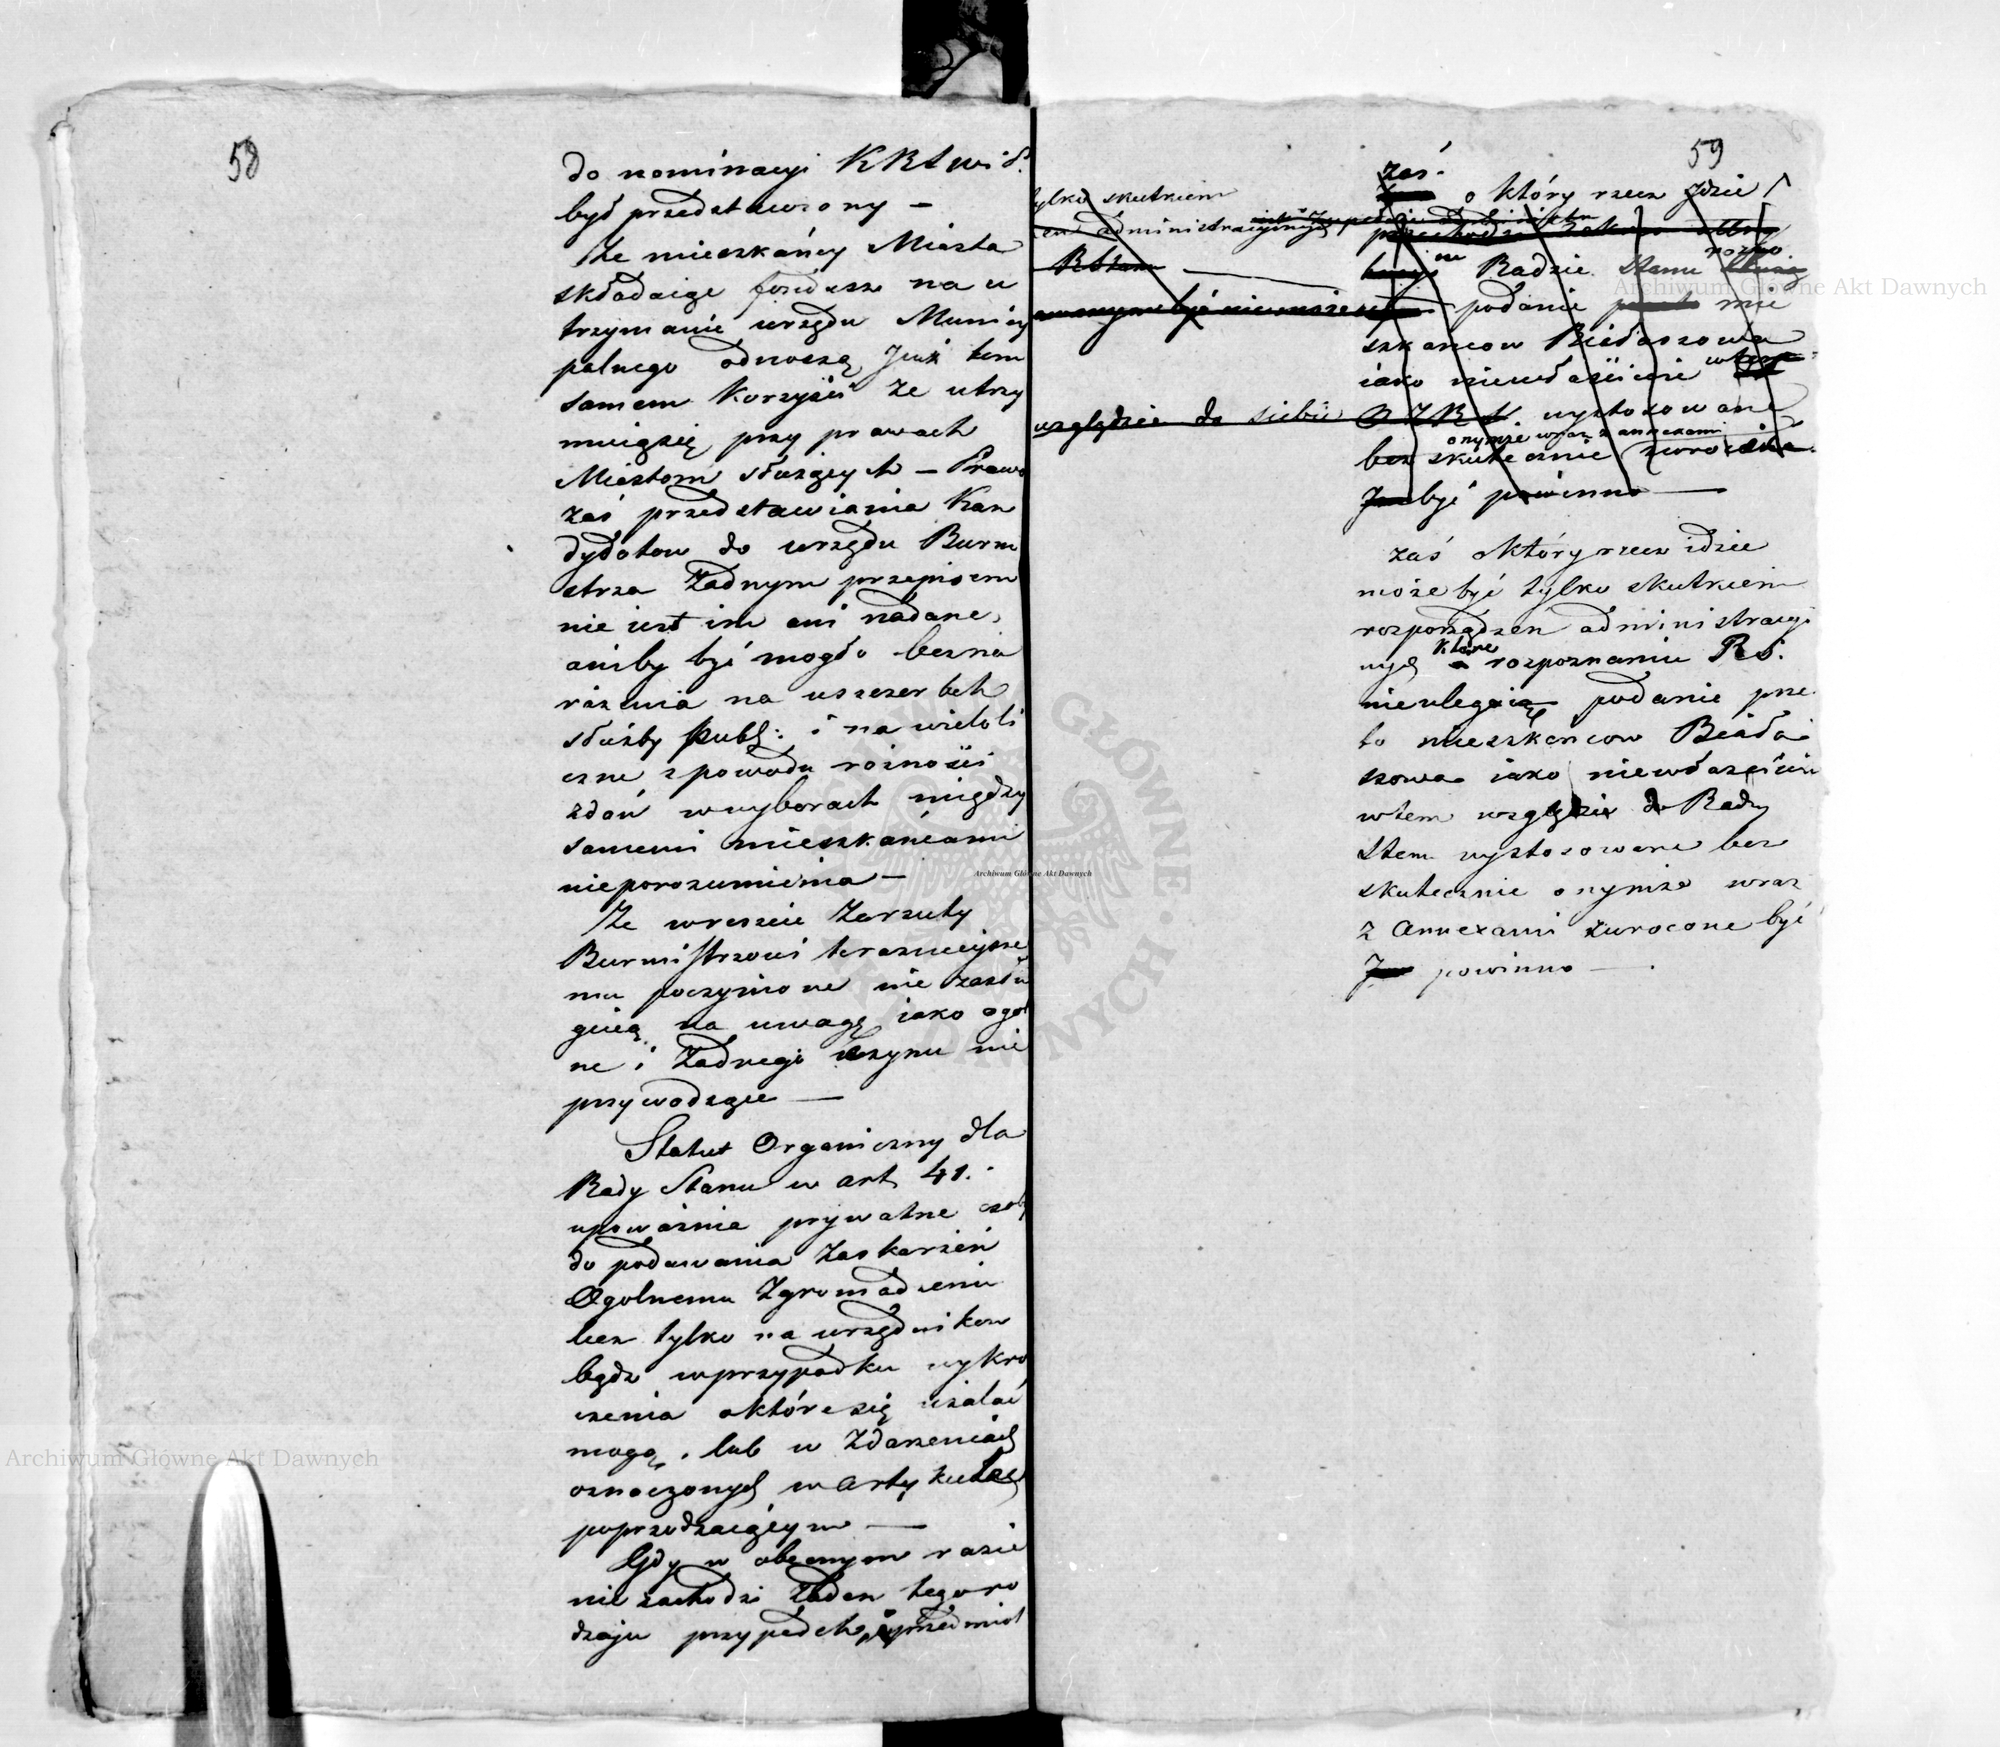 58
do nominacyi KRSwið.
był przedstawiony —
Że mieszkańcy Miasta
składaiąc fundusz na u
trzymanie urzędu Municy
palnego odnoszą już tem
samem korzyść że utrzy
muią się przy prawach
Miastom służących — Prawo
zaś przedstawiania Kan
dydatow do urzędu Burm
strza żadnym przepisem
nie iest im ani nadane,
aniby być mogło bez na
rażenia na uszczerbek
służby publ: i na wieloli
czne z powodu rożności
zdań w wyborach między
samemi mieszkańcami
nieporozumienia —
Że wreszcie zarzuty
Burmistrzowi terazniejsze
mu poczynione nie zasłu
guią na uwagę iako ogol
ne i żadnego czynu nie
przywodzące —
Statut Organiczny dla
Rady Stanu w art. 41.
upoważnia prywatne osoby
do podawania zaskarżeń
Ogolnemu Zgromadzeniu
lecz tylko na urzędnikow
bądz w przypadku wykro
czenia o które się użalać
mogą, lub w zdarzeniach
oznaczonych w artykułach
poprzedzaiącym —
Gdy w obecnym razie
nie zachodzi żaden tego ro
dzaju przypadek, przedmiot
59
zaś
o który rzecz idzie
tylko skutkiem
administracyinych
w Radzie Stanu
być nie może podanie mie
szkancow Białaszowa
iako niewłaściwie w tem
względzie do siebie wystosowane
onymże wraz z annexami
bezskutecznie zwrócone
być powinno —
zaś o który rzecz idzie
może być tylko skutkiem
rozporządzeń administracyi
nych które rozpoznaniu RS.
nieulegaią podanie prze
to mieszkancow Biała
szowa iako niewłaściwie
w tem względzie do Rady
Stanu wystosowane bez
skutecznie onymże wraz
z Annexami zwrocone być
powinno —
Archiwum Główne Akt Dawnych
Archiwum Główne Akt Dawnych
Archiwum Główne Akt Dawnych